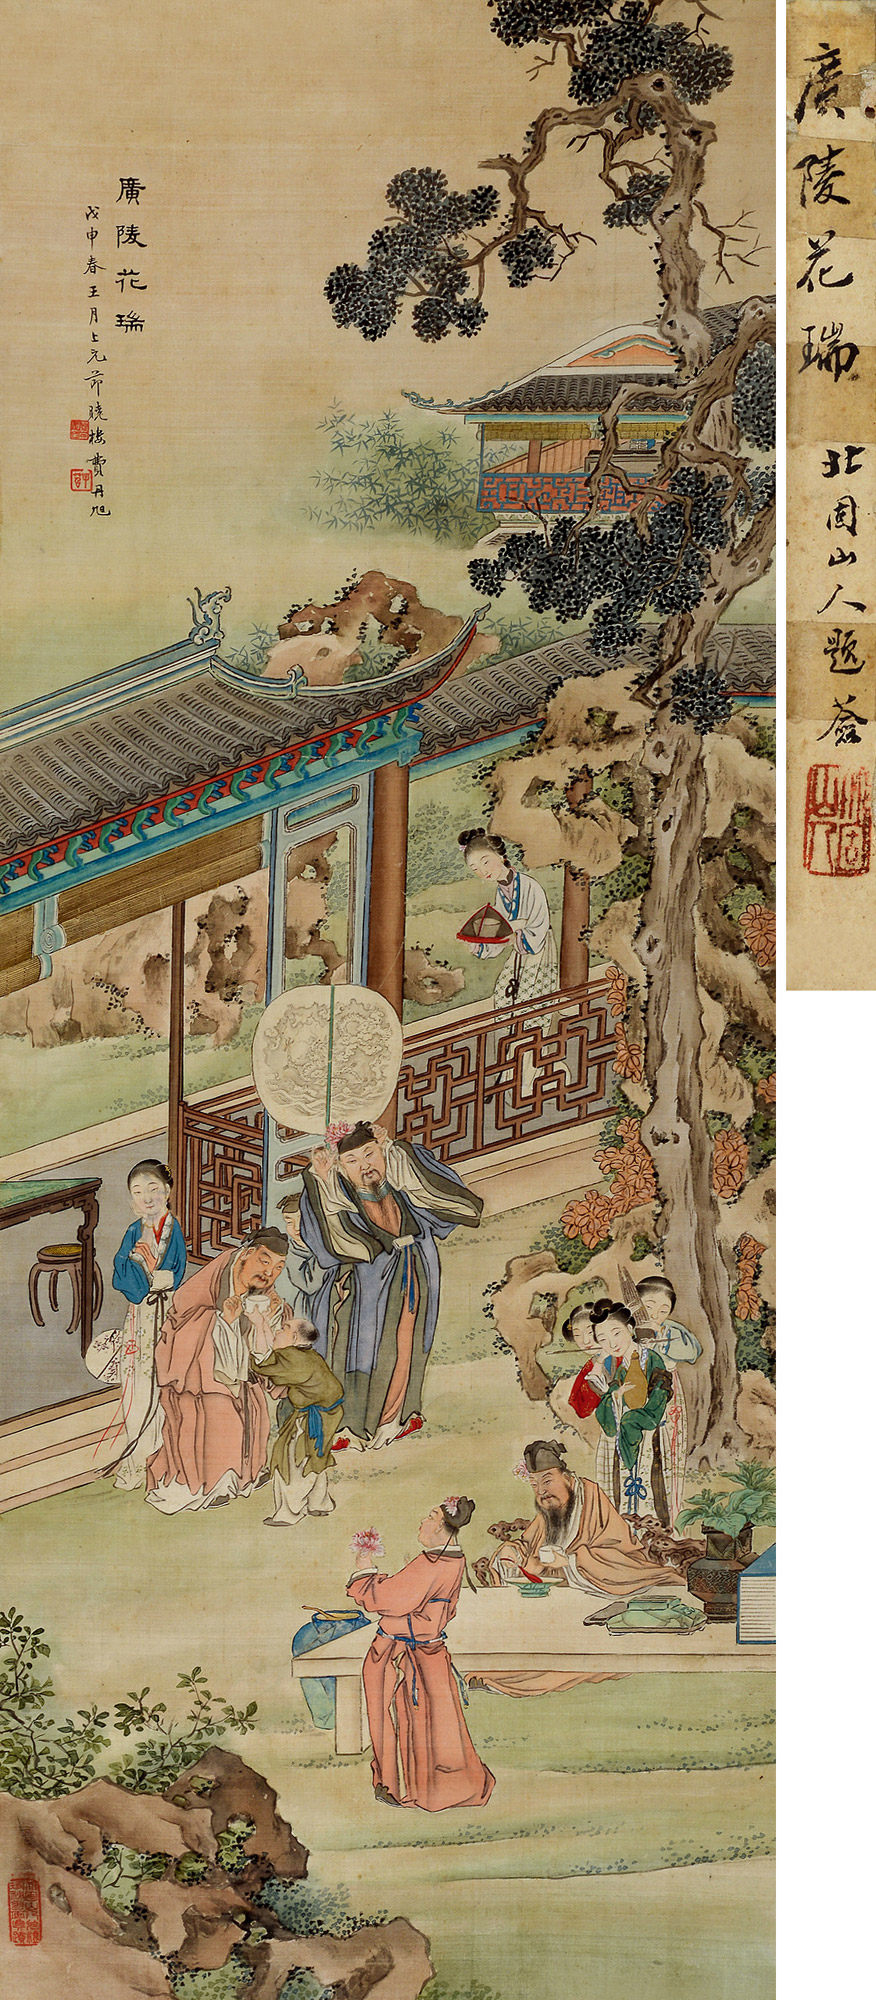 廣陵花瑞
戊申春王月上元節曉樓費丹旭
廣陵花瑞
北固山人題簽